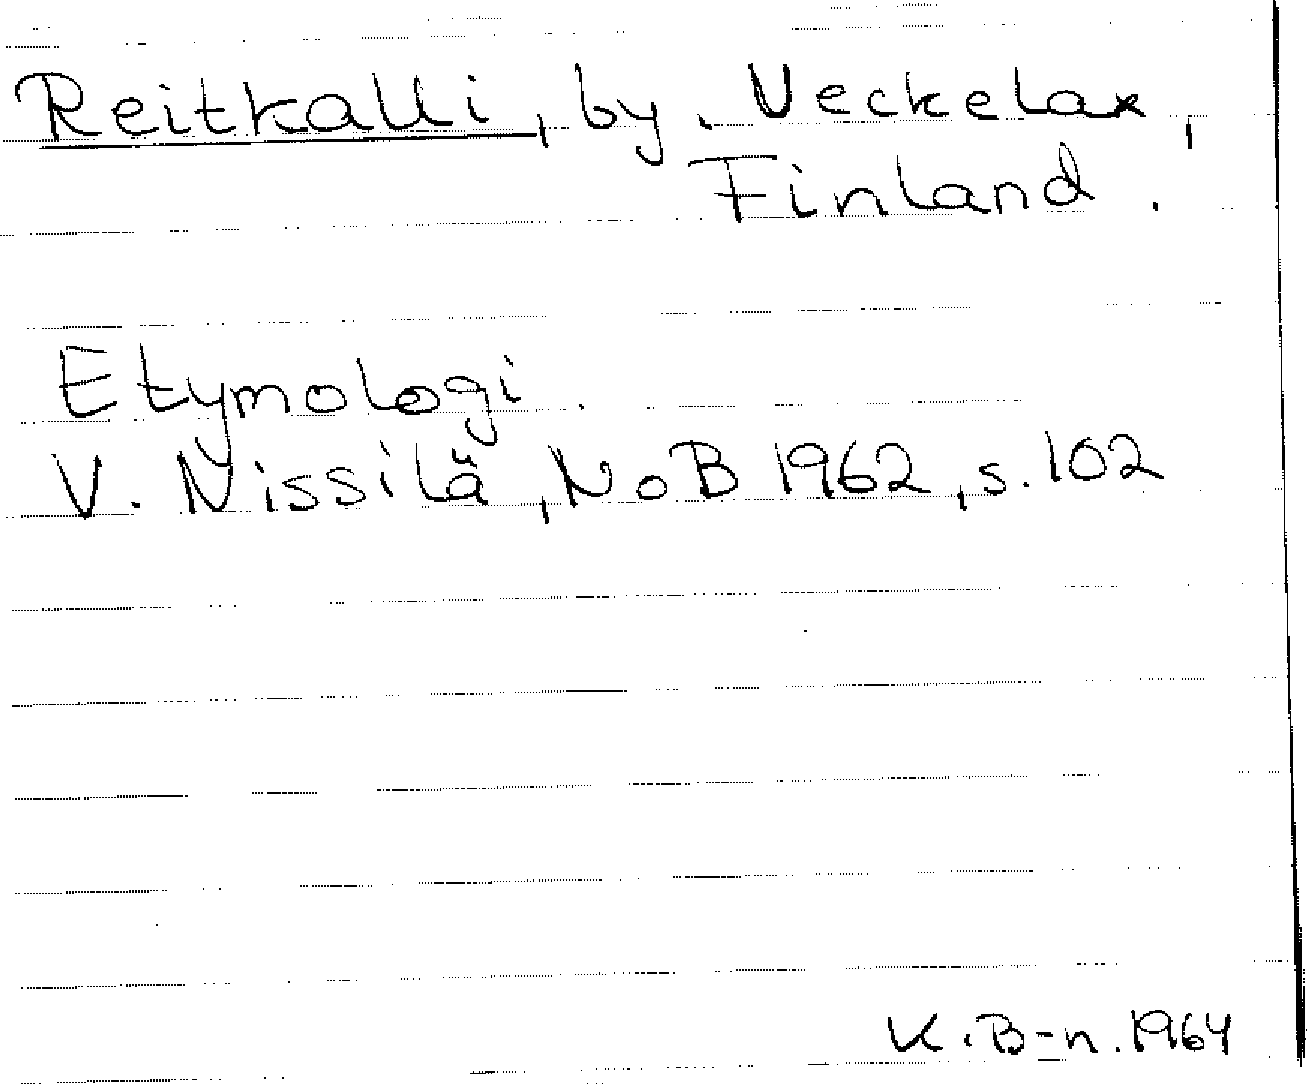 Reitkalli, by. Veckelax,
Finland.
Etymologi.
V. Nissilä, NoB 1962, s. 102
K.B-n. 1964